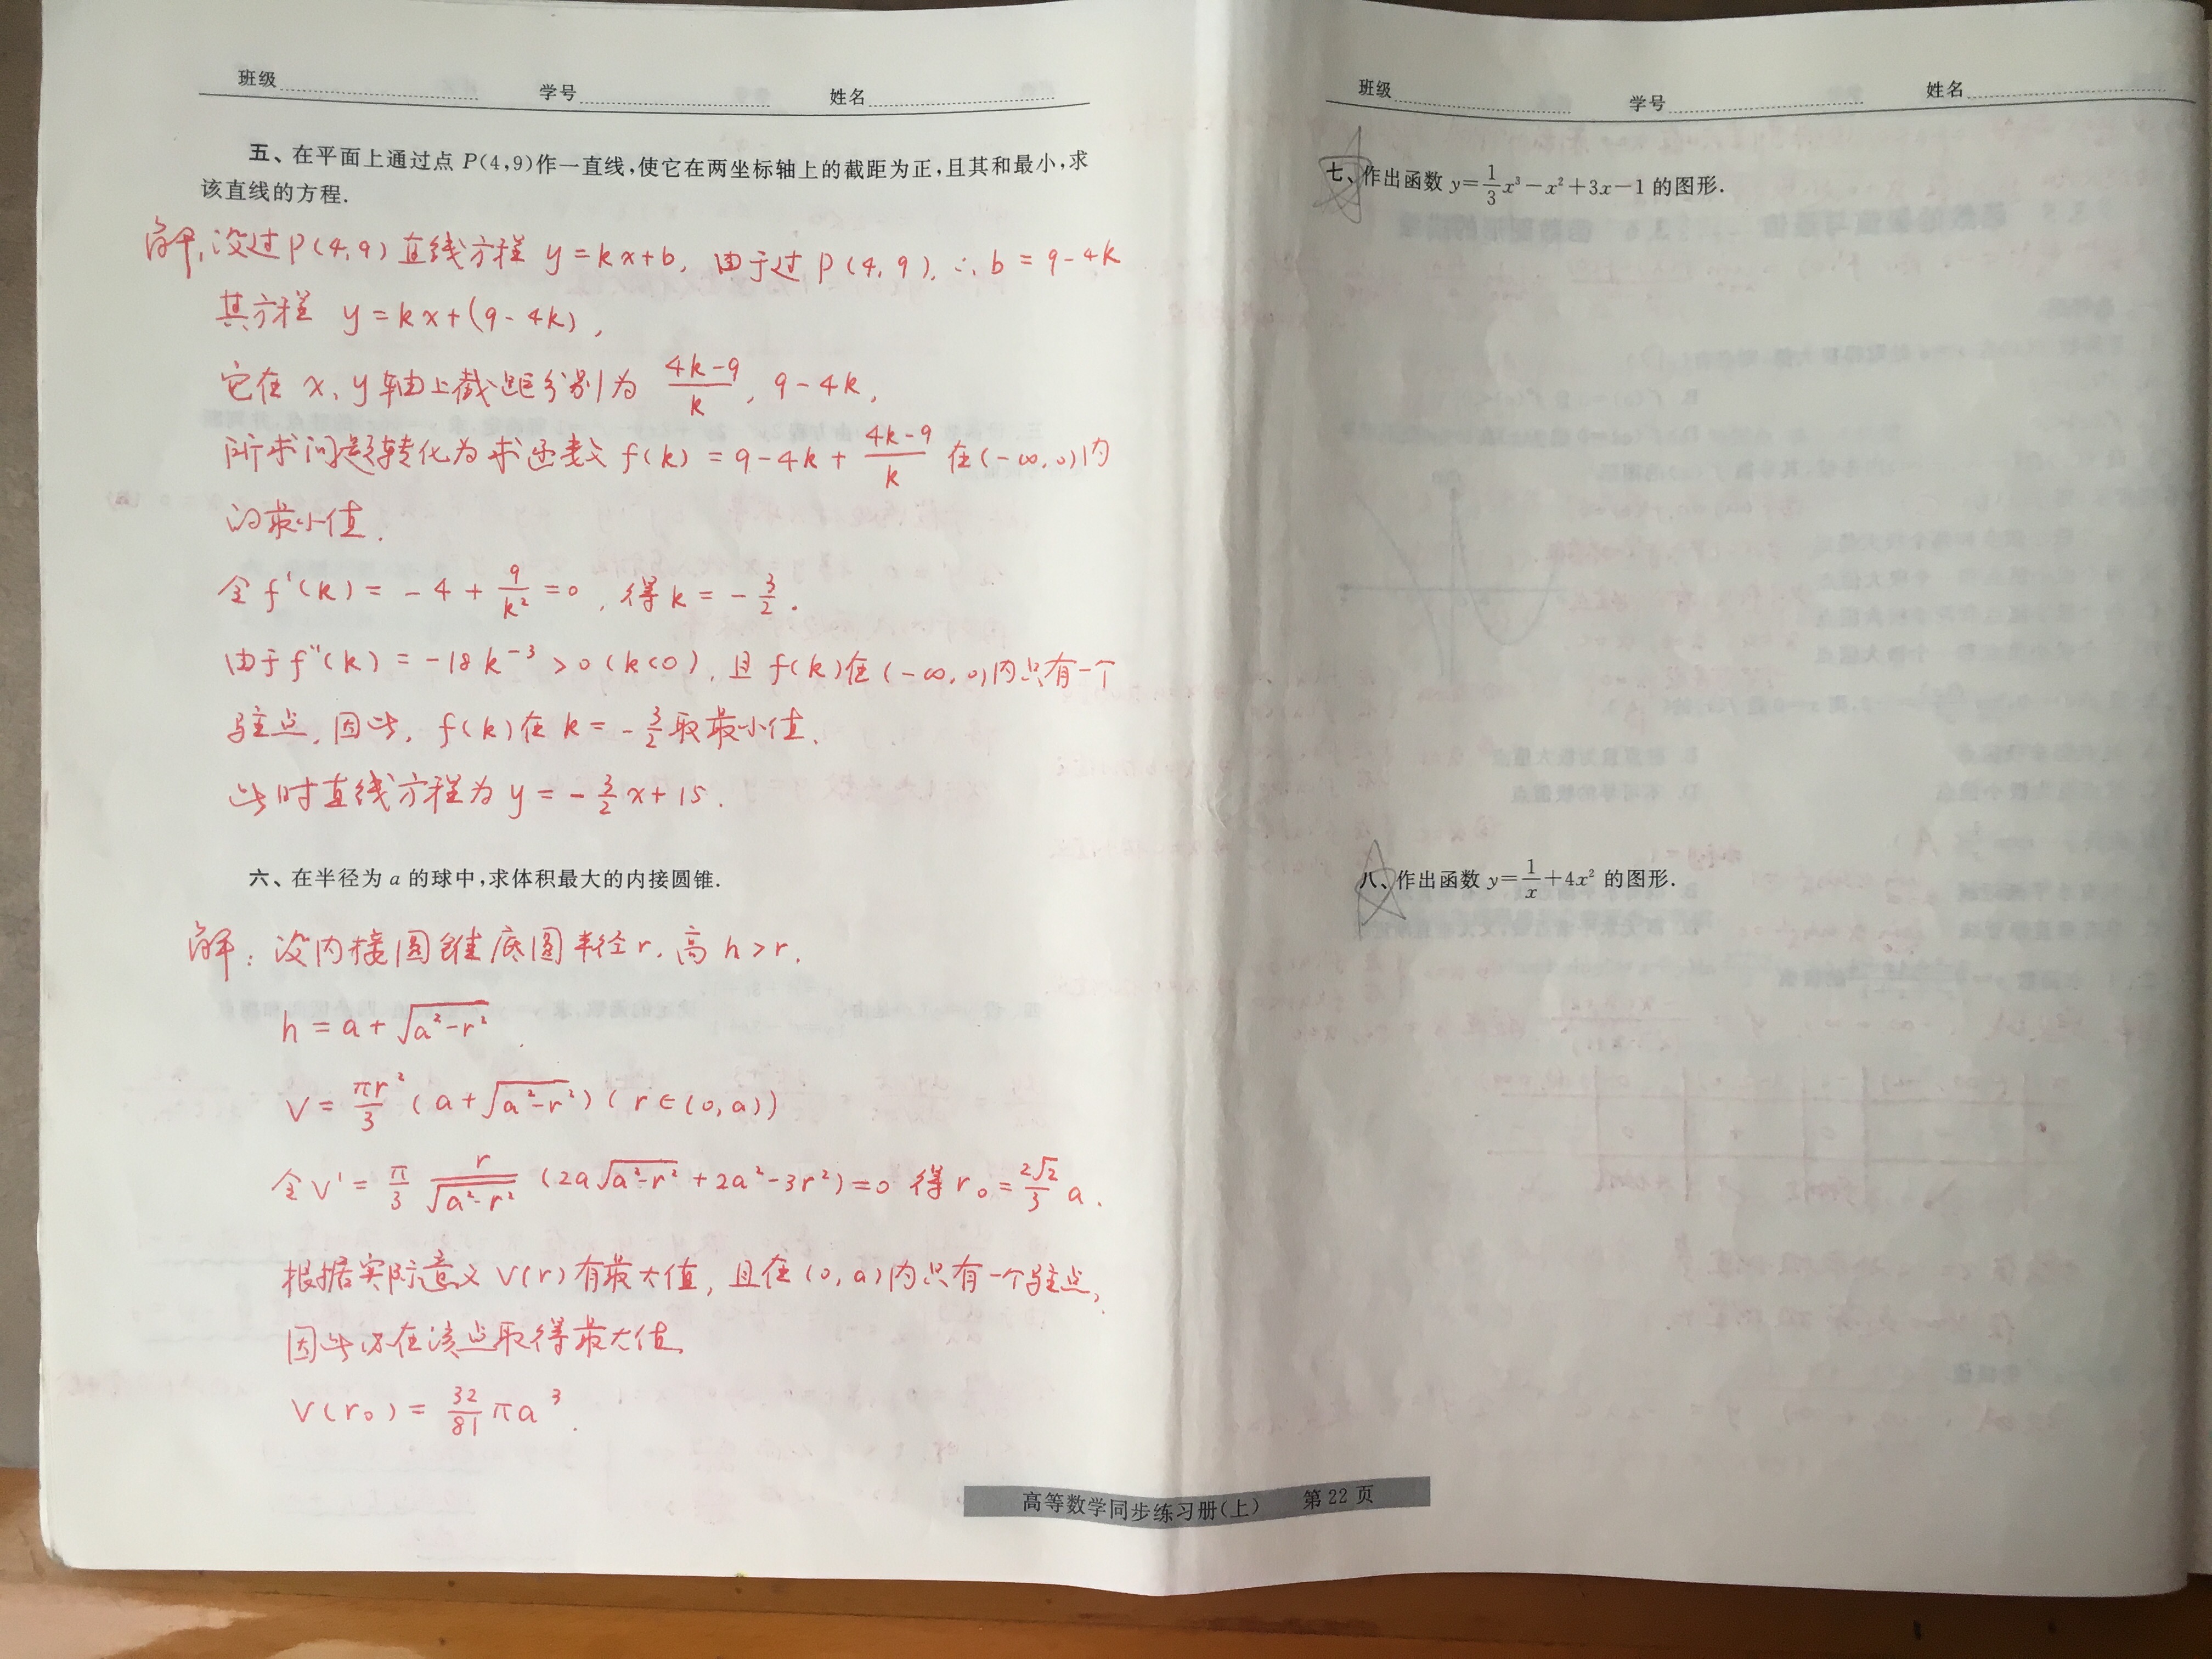 班级 学号 姓名
五、在平面上通过点 P(4,9)作一直线,使它在两坐标轴上的截距为正,且其和最小,求
该直线的方程.
解,设过P(4,9)直线方程 y=kx+b, 由于过P(4,9), ∴ b=9-4k
其方程 y=kx+(9-4k),
它在 x、y轴上截距分别为 \frac{4k-9}{k}, 9-4k,
所求问题转化为求函数 f(k)=9-4k+\frac{4k-9}{k} 在(-∞,0)内
的最小值.
令 f'(k)=-4+\frac{9}{k²}=0, 得k=-\frac{3}{2}.
由于f''(k)=-18k⁻³>0(k<0), 且f(k)在(-∞,0)内只有一个
驻点, 因此, f(k)在k=-\frac{3}{2}取最小值.
此时直线方程为y=-\frac{3}{2}x+15.
六、在半径为 a 的球中,求体积最大的内接圆锥.
解: 设内接圆锥底圆半径r, 高h>r.
h=a+\sqrt{a²-r²}.
V=\frac{πr²}{3}(a+\sqrt{a²-r²})(r∈(0,a))
令V'=\frac{π}{3}\frac{r}{\sqrt{a²-r²}}(2a\sqrt{a²-r²}+2a²-3r²)=0 得r₀=\frac{2\sqrt{2}}{3}a.
根据实际意义V(r)有最大值, 且在(0,a)内只有一个驻点,
因此必在该点取得最大值.
V(r₀)=\frac{32}{81}πa³.
班级 学号 姓名
七、作出函数 y=\frac{1}{3}x³-x²+3x-1 的图形.
八、作出函数 y=\frac{1}{x}+4x² 的图形.
高等数学同步练习册(上) 第22页